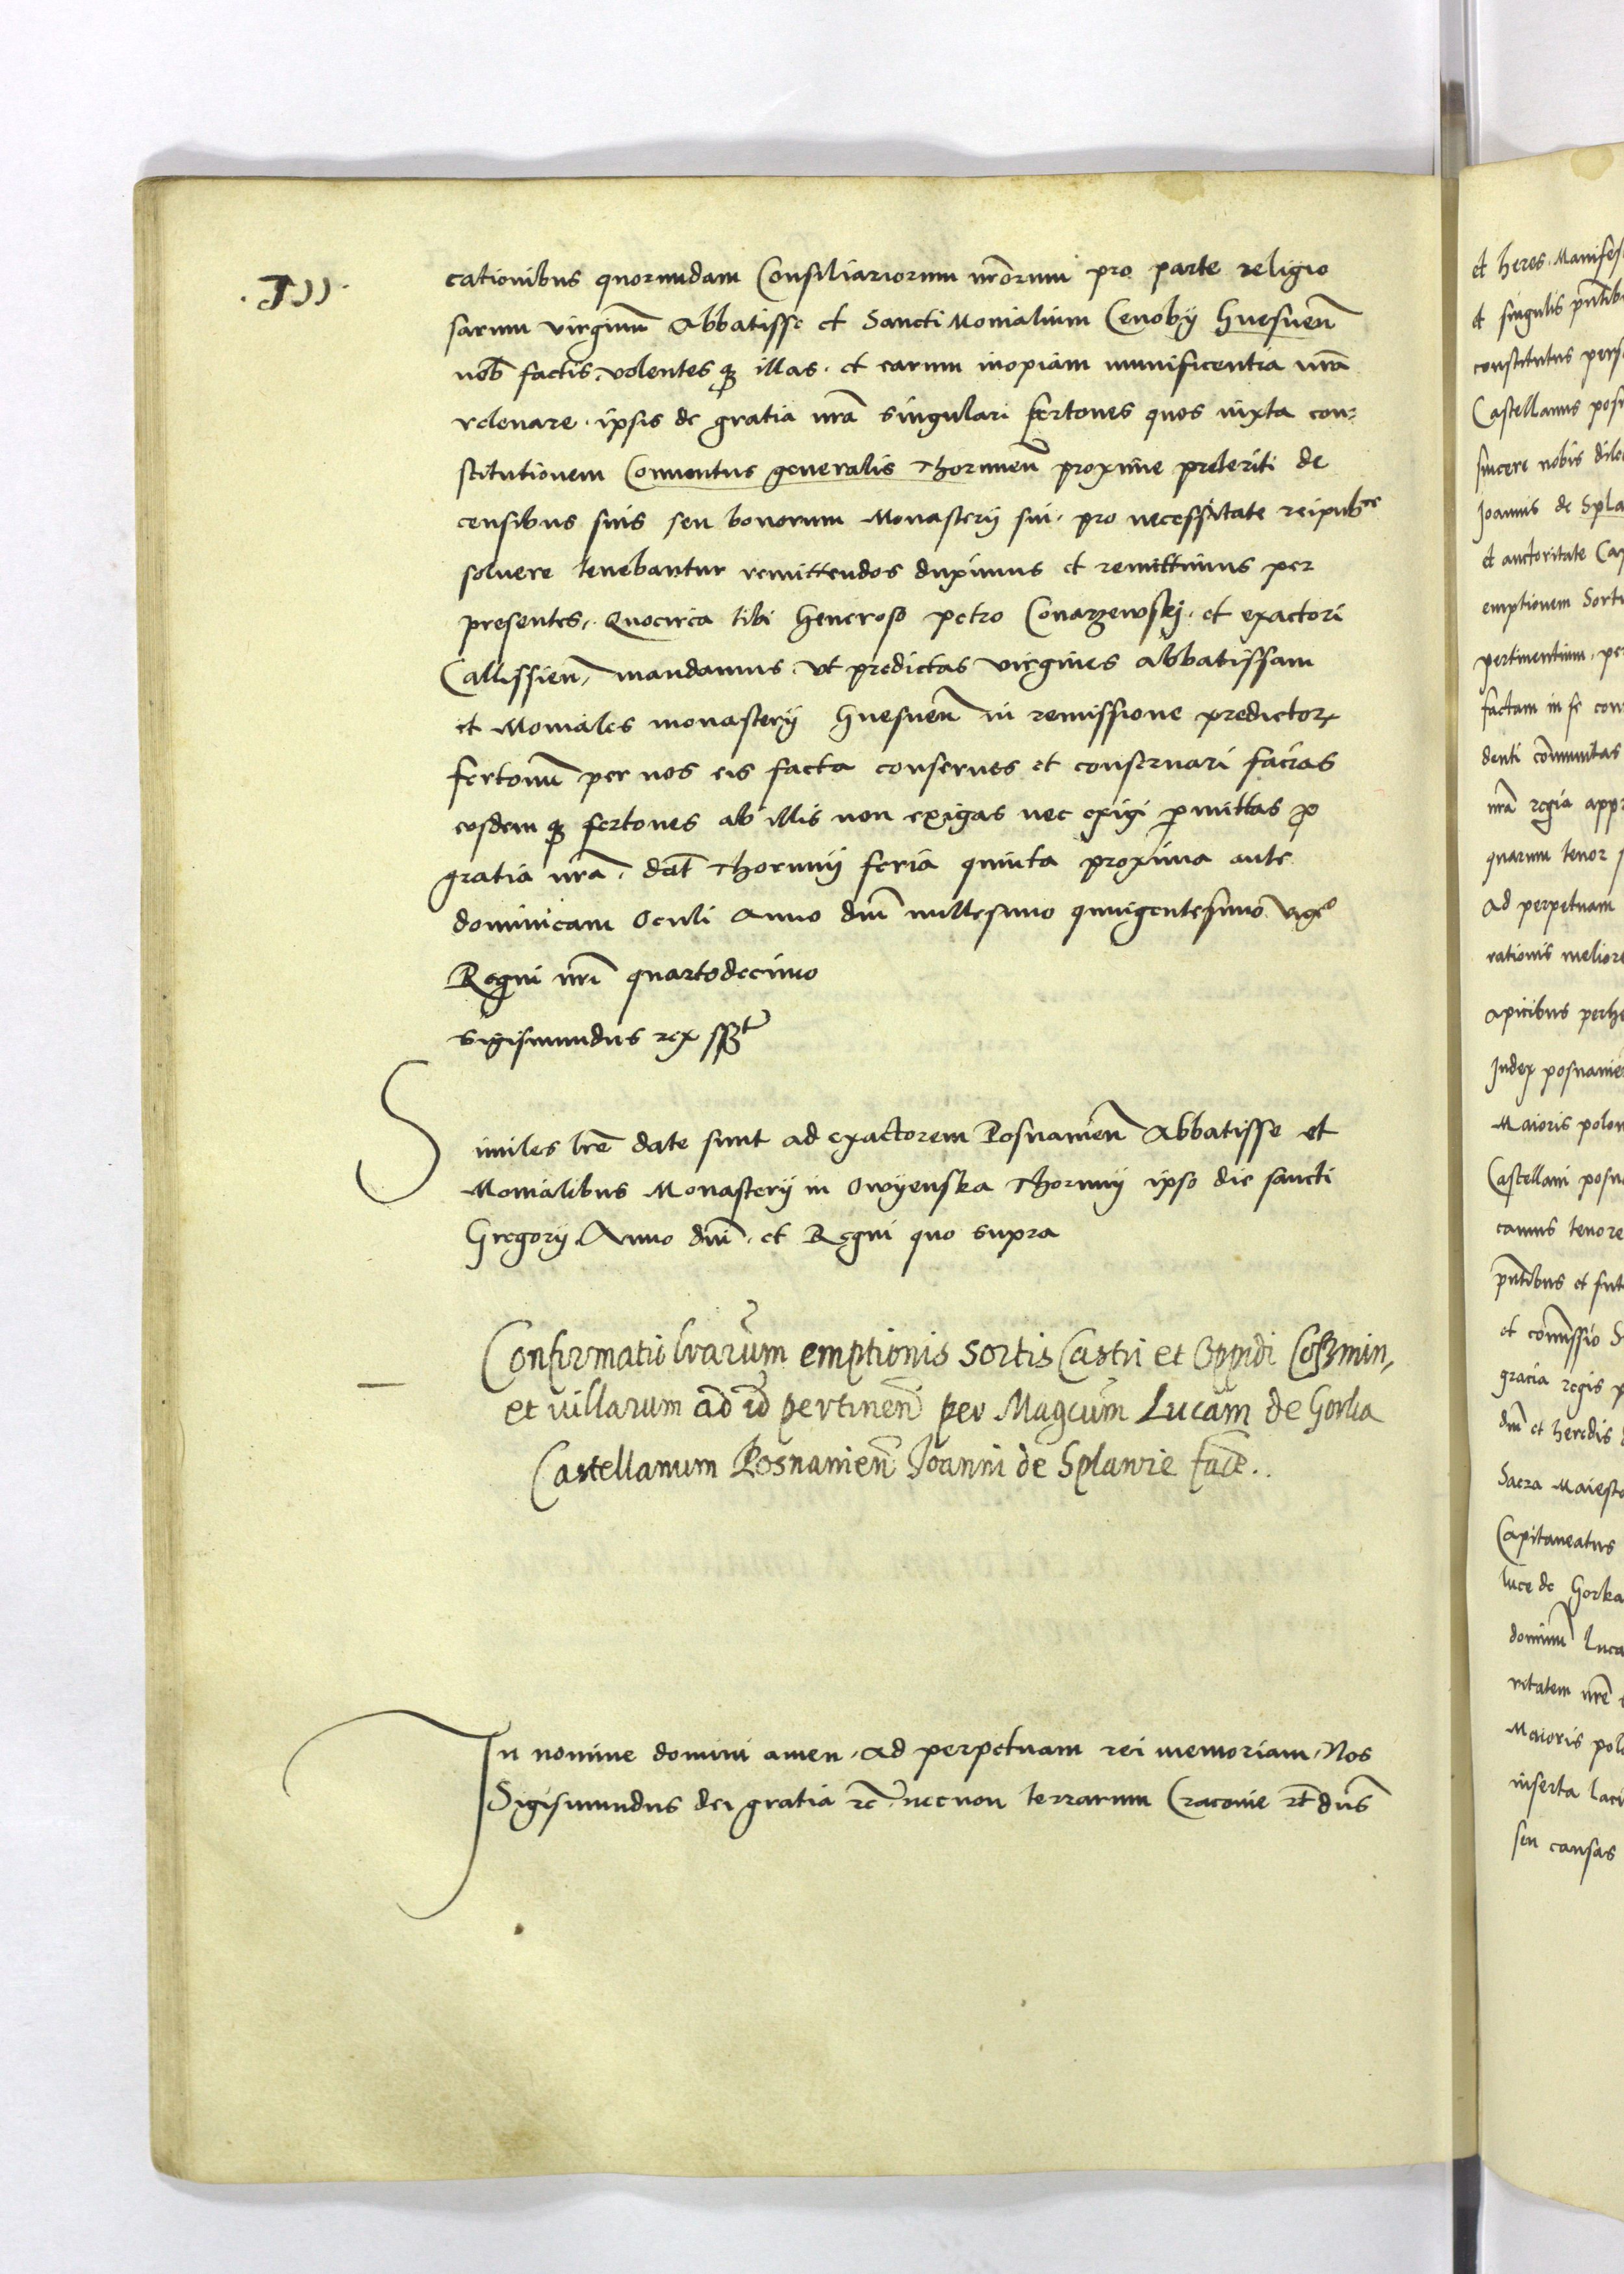 cationibus quorundam Consiliariorum nrõrum pro parte religio
sarum virginũ Abbatisse et Sancti Monialium Cenobij Gnesneñ
nob̃ factis. volentes q̃ illas. et earum inopiam munificentia nrã
relevare. ipsis de gratia nrã singulari fertones quos iuxta con=
stitutionem Conventus generalis Thoruneñ proxime preteriti de
censibus suis seu bonorum Monasterij sui. pro necessitate reipubce
soluere tenebantur remittendos duximus et remittimus per
presentes. Quocirca tibi Generoso Petro Conarzewskj. et exactori
Callissień, mandamus. Vt predictas virgines abbatissam
et Moniales monasterij Gnesneñ in remissione predictor
fertonũ per nos eis facta conserues et conservari facias
eosdem q̃ fertones ab illis non exigas nec exigi p̱mittas p̱
gratia nrã. dat̃ Thorunij feria quinta proxima ante
dominicam Oculi Anno dnĩ millesimo quingentesimo vigo
Regni nrĩ quartodecimo
Sigismundus rex sszt
Similes lrẽ date sunt ad exactorem Posnanieñ Abbatisse et
Monialibus Monasterij in Owyenska Thorunij ipso die sancti
Gregorij. Anno dnĩ. et Regni quo supra
Confirmatio lrarũm emptionis Sortis Castri et Oppidi Coszmin,
et villarum ad id pertineñ per Magcũm Lucam de Gorka
Castellanum Posnanieñ Joanni de Splawie facẽ..
In nomine domini amen. ad perpetuam rei memoriam. Nos
Sigismundus dei gratia rc̃. necnon terrarum Cracovie rc̃ dñs
et heres. Manifes
et singulis pñtib
constitutus pers
Castellanus posn
sincere nobis dile
Joannis de Spla
et auctoritate Cap
emptionem Sorti
pertinentium. per
factam in se con
denti com̃unitas
nrã regia appr
quarum tenor
ad perpetuam
rationis meliore
apicibus perhe
Judex posnanie
Maioris polon
Castellani posn
camus tenore
pñtibus et fut
et com̃issio S
gracia regis p
dnĩ et heredis
Sacra Maiesta
Capitaneatus
luce de Gorka
dominũ Luca
ritatem nrẽ
Maioris polo
inserta
seu causas